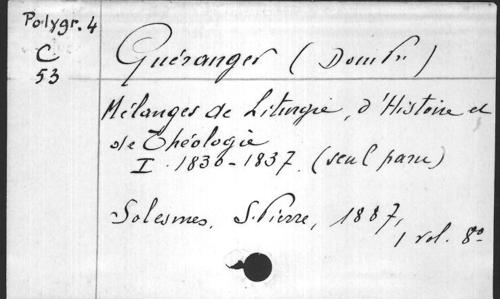 Polygr. 4
C
53
Guéranger (Dom Pr.)
Mélanges de Liturgie, d'Histoire et
de Théologie
I. 1830-1837. (seul paru)
Solesmes, S. Pierre, 1887,
1 vol. 8º